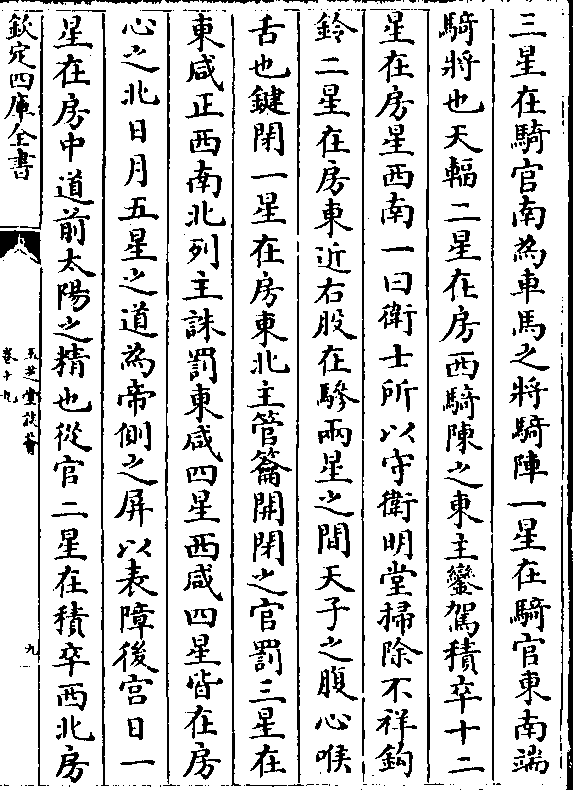 三星在騎官南為車馬之將騎陣一星在騎官東南端
騎將也天輻二星在房西騎陳之東主鑾駕積卒十二
星在房星西南一曰衛士所以守衛明堂掃除不祥鈎
鈐二星在房東近右股在驂兩星之間天子之腹心喉
舌也鍵閉一星在房東北主管籥開閉之官罰三星在
東咸正西南北列主誅罰東咸四星西咸四星皆在房
心之北日月五星之道為帝側之屏以表障後宮日一
星在房中道前太陽之精也從官二星在積卒西北房
欽定四庫全書
玉芝堂談薈
卷十九
九